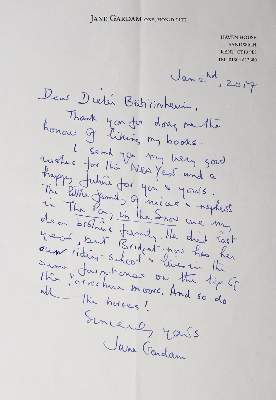 JANE GARDAM OBE, HON.D.LITT
HAVEN HOUSE
SANDWICH
KENT
Jan 2nd, 2017
Dear Dieter
Thank you for doing me the
honour of liking my books.
I send you my very good
wishes for this New Year and a
happy future for you & yours.
The family of nieces & nephews
in The by the Snow are my
dear family. He died last
year, but Bridget now has her
own riding school & lives in the
same farmhouse on the top of
the moors. And so do
all — the horses!
Sincerely yours
Jane Gardam